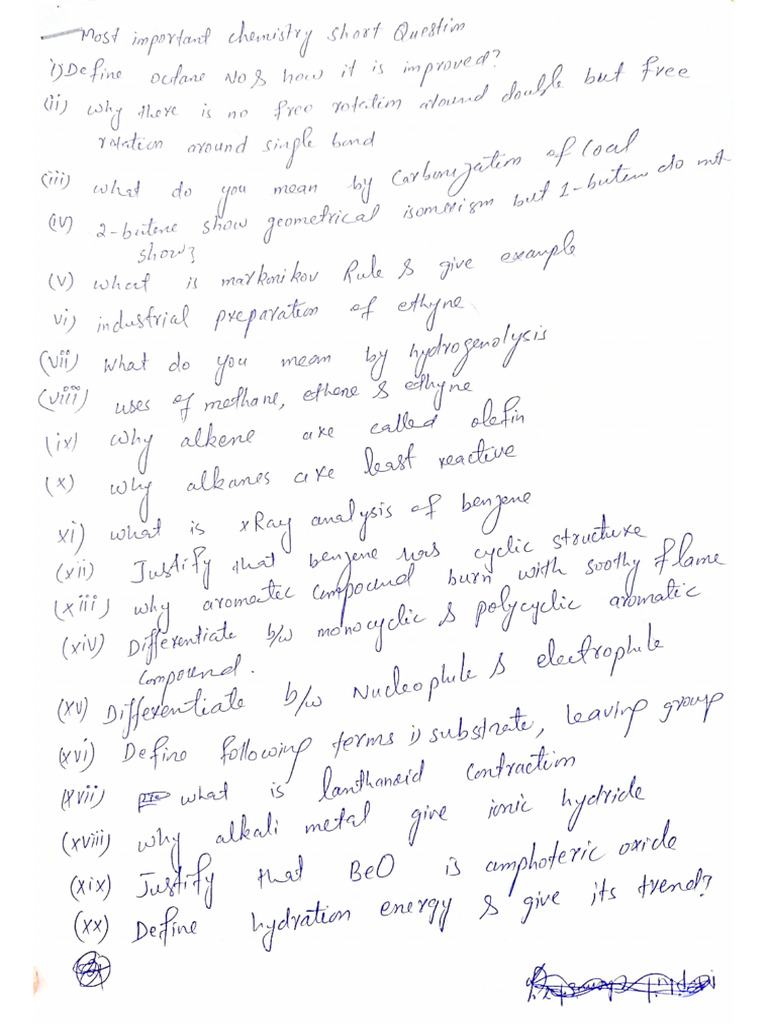 Most important chemistry short Question
i) Define octane No & how it is improved?
(ii) why there is no free rotation around double but free
rotation around single bond
(iii) what do you mean by Carbonization of Coal
(iv) 2-butene show geometrical isomerism but 1-butene do not
show?
(v) what is markonikov Rule & give example
vi) industrial preparation of ethyne
(vii) what do you mean by hydrogenolysis
(viii) uses of methane, ethene & ethyne
(ix) why alkene are called olefin
(x) why alkanes are least reactive
xi) what is xRay analysis of benzene
(xii) Justify that benzene has cyclic structure
(xiii) why aromatic compound burn with soothy flame
(xiv) Differentiate b/w monocyclic & polycyclic aromatic
compound.
(xv) Differentiate b/w Nucleophile & electrophile
(xvi) Define following terms i) substrate, leaving group
(xvii) what is lanthanoid contraction
(xviii) why alkali metal give ionic hydride
(xix) Justify that BeO is amphoteric oxide
(xx) Define hydration energy & give its trend?